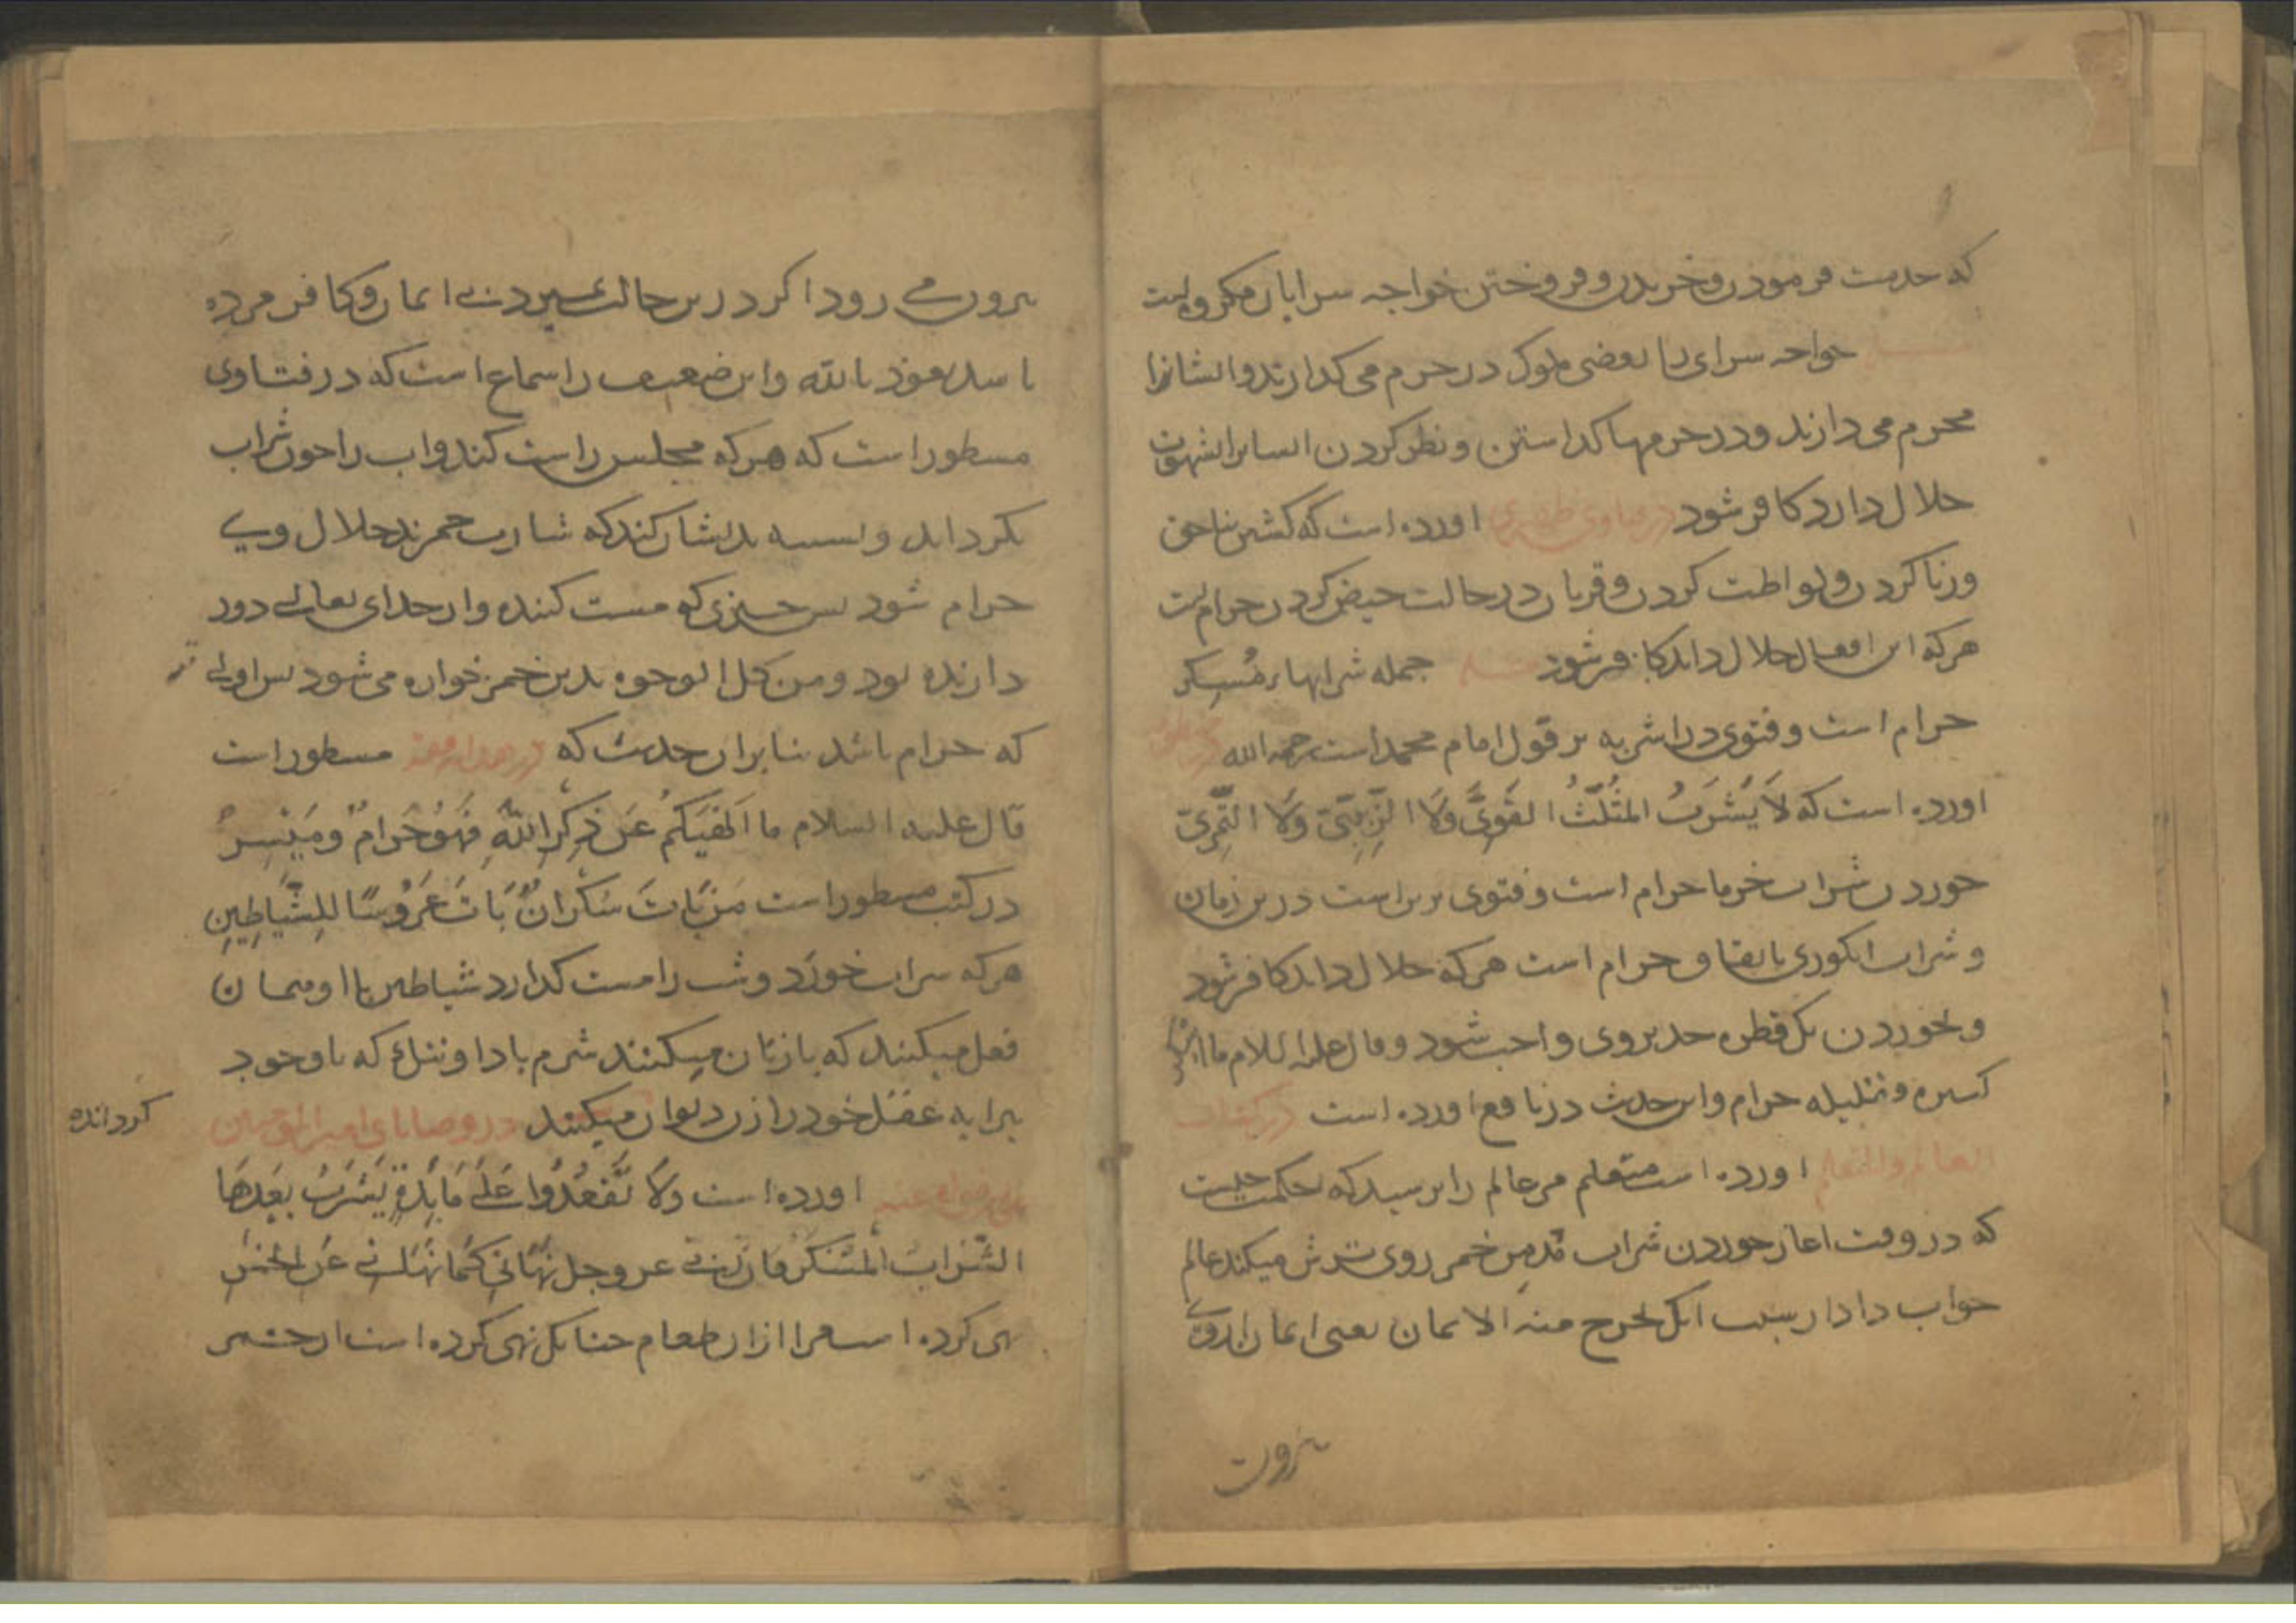 که خدمت فرمودن و خریدن و فروختن خواجه سرایان مکروهست
مسئله خواجه سرای را بعضی ملوک در حرم می گذارند و ایشانرا
محرم می دارند و در حرمها گذاشتن و نظر کردن ایشانرا بشهوت
حلال دارد کافر شود در فتاوی ظهیری اورده است که کشتن بناحق
و زنا کردن و لواطت کردن و قربان در حالت حیض کردن حرامست
هر که این افعال حلال داند کافر شود مسئله جمله شرابهاء مُسکر
حرام است و فتوی در اشربه بر قول امام محمد است رحمه الله
اورده است که لَا یُشْرَبُ المُثَلَّثُ القَوِیُّ وَلَا الزَّبِیبِیّ وَلَا التَّمْرِیّ
خوردن شراب خرما حرام است و فتوی برین است درین زمان
و شراب انکوری باتفاق حرام است هر که حلال داند کافر شود
و خوردن یک قطره حد بر وی واجب شود و قال علیه السلام ما اسکر
کسیره و قلیله حرام و این حدیث در نافع اورده است در کتاب
العالم والمتعلم اورده است متعلم مر عالم را پرسید که حکمت چیست
که در وقت اغاز خوردن شراب قدمن خمر روی ترش میکند عالم
جواب داد از سبب انک یخرج منه الایمان یعنی ایمان از وی
بیرون
بیرون می رود اکر درین حالت بمیرد بی ایمان و کافر مرده
باشد نعوذ بالله و این ضعیف را سماع است که در فتاوی
مسطور است که هر که مجلس راست کند و اب را چون شراب
بکرداند و تشبیه بدیشان کند که شارب خمرند حلال وی
حرام شود پس چیزی که مست کننده و از خدای تعالی دور
دارنده بود و من کل الوجوه بدین خمر خواره می شود پس اولی
که حرام باشد بنا بران حدیث که مسطور است
قال علیه السلام ما اَلْهَیکُم عَن ذِکْرِ اللّٰهِ فَهُوَ حَرَامٌ و مَیْسِرٌ
در کتب مسطور است مَن بَاتَ سَکْرَانٌ بَاتَ عَرُوسًا لِلشَّیَاطِینِ
هر که شراب خورد و شب را مست کذارد شیاطین با او همان
فعل میکنند که با زنان میکنند شرم باد او ننک که با وجود
پرایه عقل خود را زن دیوان میکنند در وصایای امیر المؤمنین
کردانده
علی رضی الله عنه اورده است وَلَا تَقْعُدُوا عَلَی مَایِدَةٍ یُشْرَبُ بَعْدَهَا
الشَّرَابُ المُسْکِرُ فَاِنَّ رَبِّی عز و جل نَهَانِی کَمَا نَهَانِی عَن الخمر
نهی کرده است مرا ازان طعام چنانک نهی کرده است از خمر